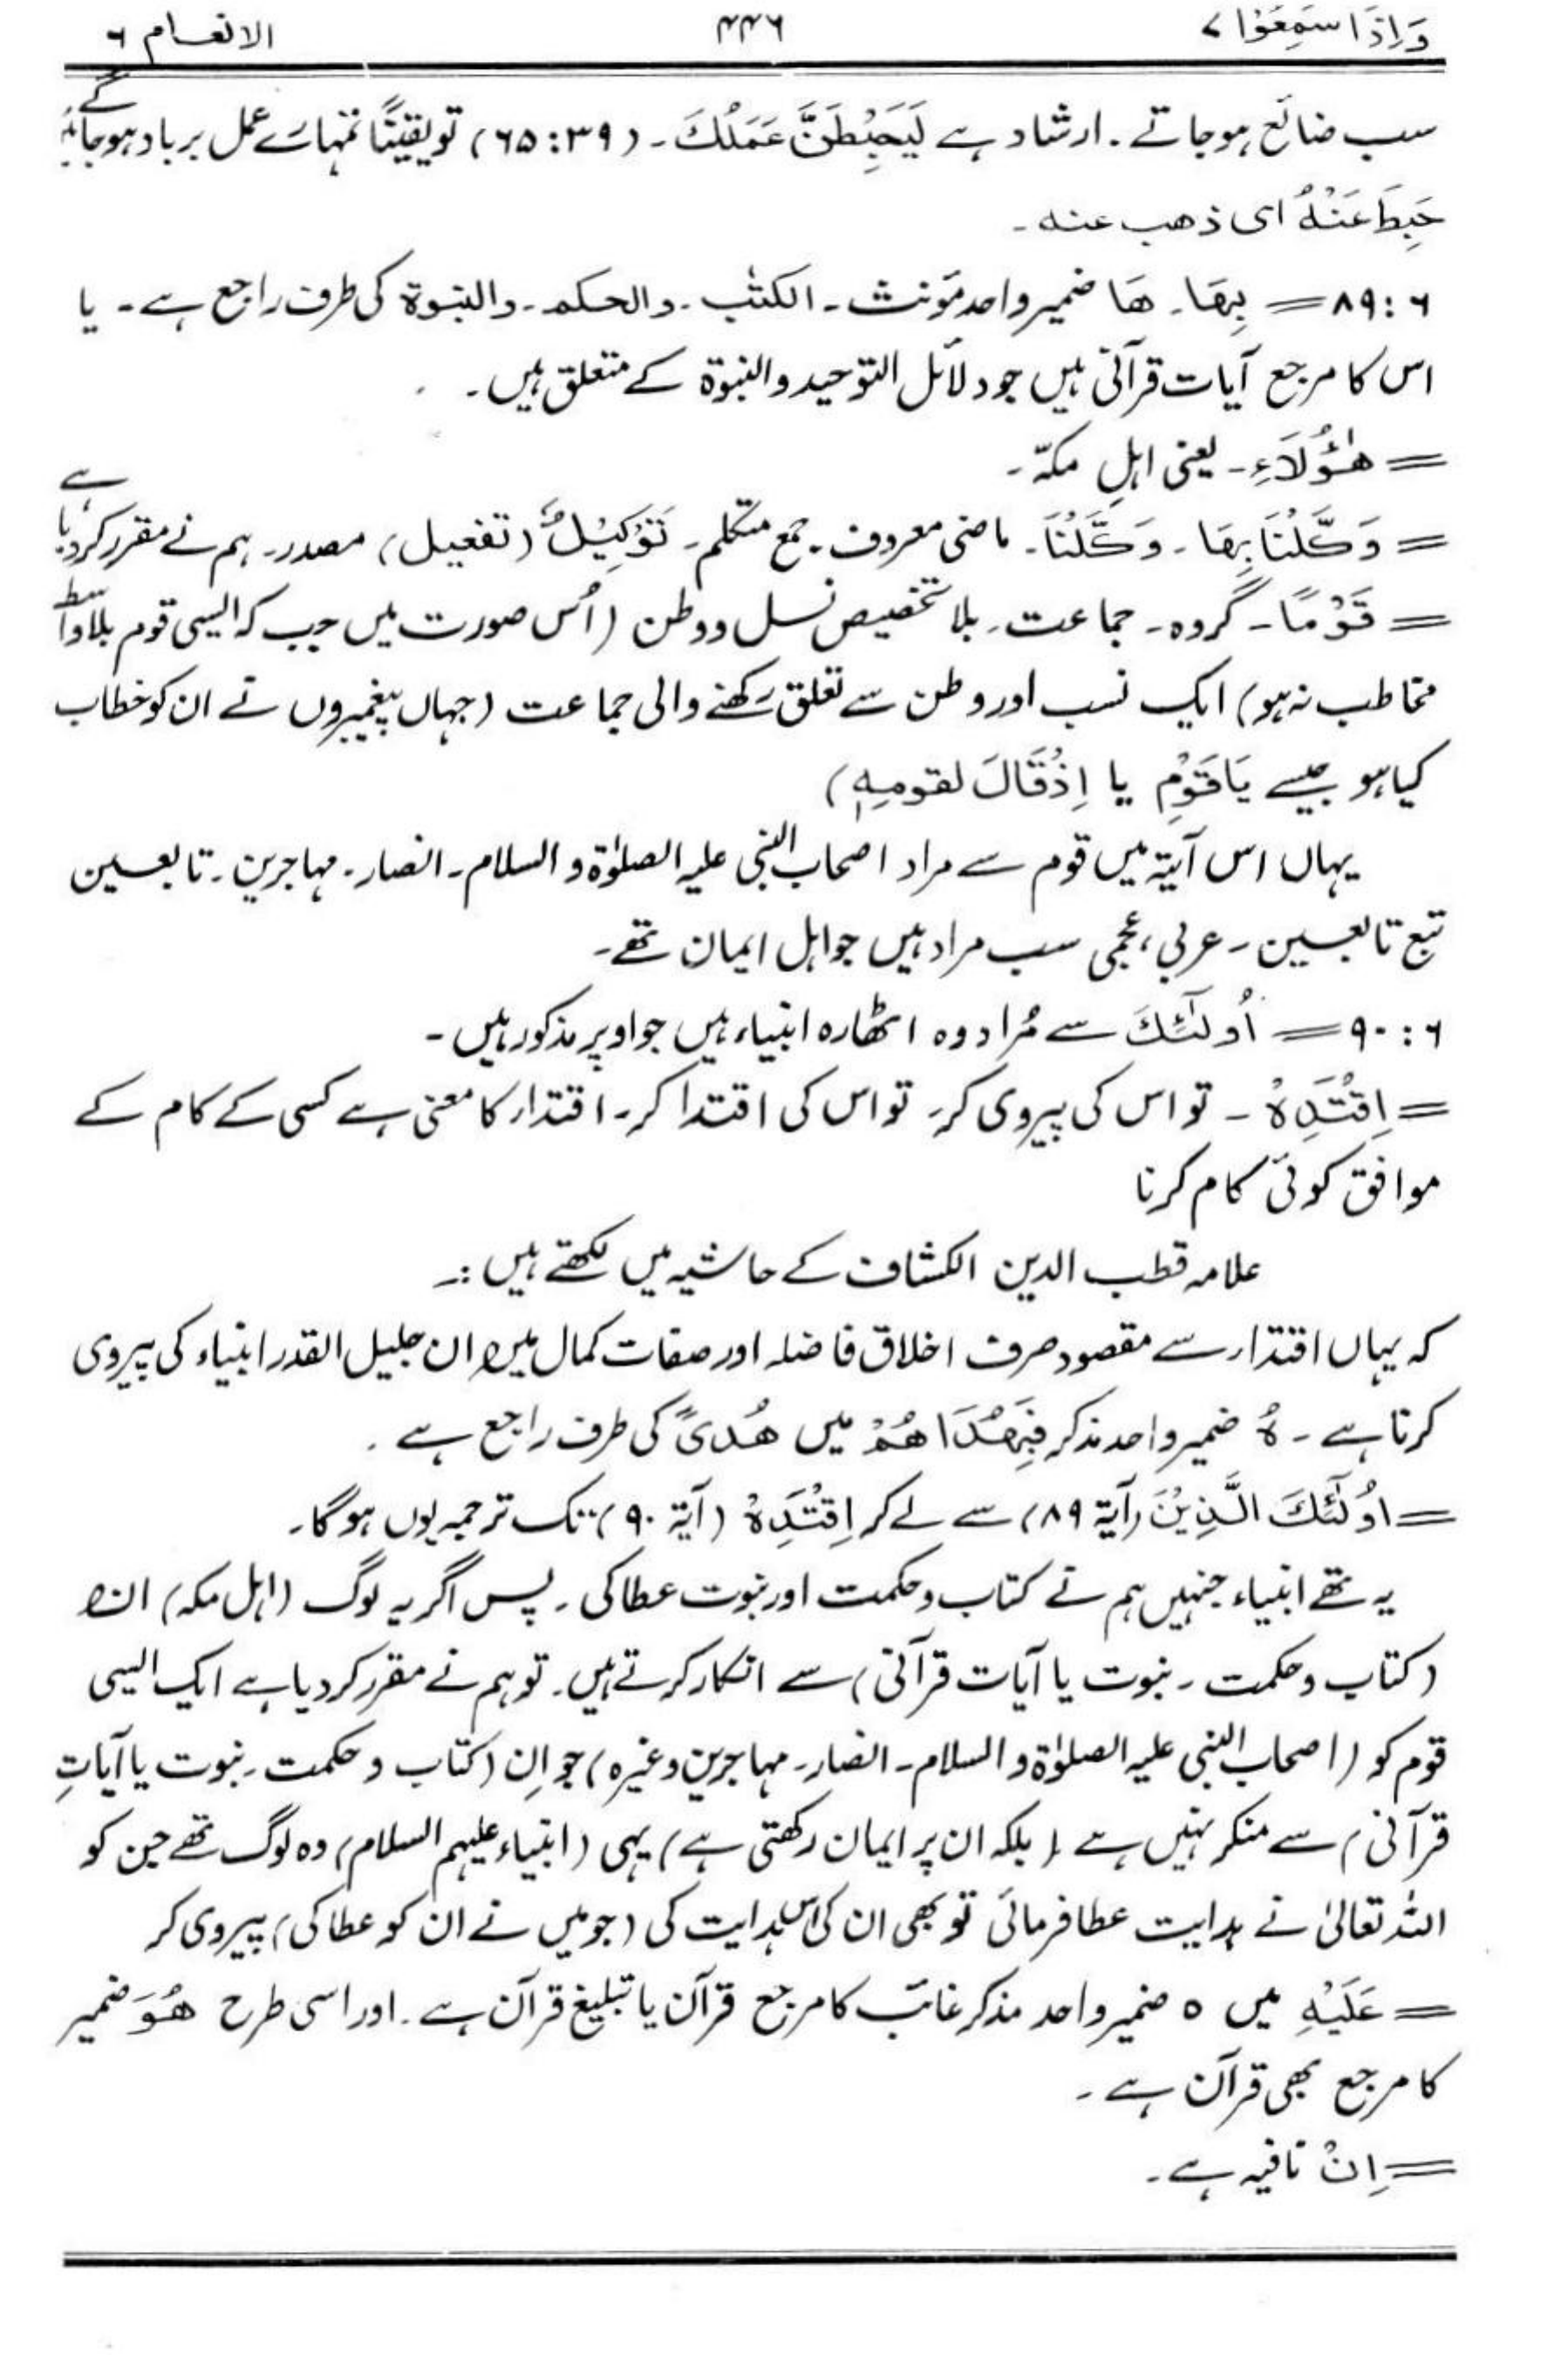 وَاِذَا سَمِعُوْا ۷ ۴۴۶ الانعام ۶
سب ضائع ہوجاتے ۔ ارشاد ہے لَيَحْبَطَنَّ عَمَلُكَ ۔ (۳۹: ۶۵) تو یقینًا تمہارے عمل برباد ہوجائیں گے
حَبِطَ عَنْهُ ای ذهب عنه ۔
۶: ۸۹ = بِهَا ۔ هَا ضمیر واحد مؤنث ۔ الکتٰب ۔ والحکم ۔ والنبوۃ کی طرف راجع ہے ۔ یا
اس کا مرجع آیات قرآنی ہیں جو دلائل التوحید والنبوۃ کے متعلق ہیں ۔
= هٰٓؤُلَآءِ ۔ یعنی اہلِ مکہّ ۔
= وَكَّلْنَا بِهَا ۔ وَكَّلْنَا ۔ ماضی معروف ۔ جمع متکلم ۔ تَوْكِيْلٌ (تفعیل) مصدر ۔ ہم نے مقرر کردیا ہے
= قَوْمًا ۔ گروہ ۔ جماعت ۔ بلا تخصیص نسل و وطن (اُس صورت میں جب کہ ایسی قوم بلاواسطہ
مخاطب نہ ہو) ایک نسب اور وطن سے تعلق رکھنے والی جماعت (جہاں پیغمبروں نے ان کو خطاب
کیا ہو جیسے يَا قَوْمِ یا اِذْ قَالَ لقومِهٖ)
یہاں اس آیۃ میں قوم سے مراد اصحاب النبی علیہ الصلوٰۃ و السلام ۔ انصار ۔ مہاجرین ۔ تابعین
تبع تابعین ۔ عربی ، عجمی سب مراد ہیں جو اہل ایمان تھے ۔
۶: ۹۰ = اُولٰٓئِكَ سے مُراد وہ اٹھارہ انبیاء ہیں جو اوپر مذکور ہیں ۔
= اِقْتَدِهْ ۔ تو اس کی پیروی کر ۔ تو اس کی اقتدا کر ۔ اقتدار کا معنی ہے کسی کے کام کے
موافق کوئی کام کرنا
علامہ قطب الدین الکشاف کے حاشیہ میں لکھتے ہیں :۔
کہ یہاں اقتدار سے مقصود صرف اخلاق فاضلہ اور صفات کمال میں ان جلیل القدر انبیاء کی پیروی
کرنا ہے ۔ هُ ضمیر واحد مذکر فَبِهُدَاهُمْ میں هُدیً کی طرف راجع ہے ۔
= اُولٰٓئِكَ الَّذِيْنَ (آیۃ ۸۹) سے لے کر اِقْتَدِهْ (آیۃ ۹۰) تک ترجمہ یوں ہوگا ۔
یہ تھے انبیاء جنہیں ہم نے کتاب و حکمت اور نبوت عطا کی ۔ پس اگر یہ لوگ (اہل مکہ) ان
(کتاب و حکمت ۔ نبوت یا آیات قرآنی) سے انکار کرتے ہیں ۔ تو ہم نے مقرر کردیا ہے ایک ایسی
قوم کو (اصحاب النبی علیہ الصلوٰۃ و السلام ۔ انصار ۔ مہاجرین وغیرہ) جو اِن (کتاب و حکمت ۔ نبوت یا آیاتِ
قرآنی) سے منکر نہیں ہے (بلکہ ان پر ایمان رکھتی ہے) یہی (انبیاء علیہم السلام) وہ لوگ تھے جن کو
اللہ تعالیٰ نے ہدایت عطا فرمائی تو بھی ان کی اس ہدایت کی (جو میں نے ان کو عطا کی) پیروی کر
= عَلَيْهِ میں ہ ضمیر واحد مذکر غائب کا مرجع قرآن یا تبلیغ قرآن ہے ۔ اور اسی طرح هُوَ ضمیر
کا مرجع بھی قرآن ہے ۔
= اِنْ نافیہ ہے ۔